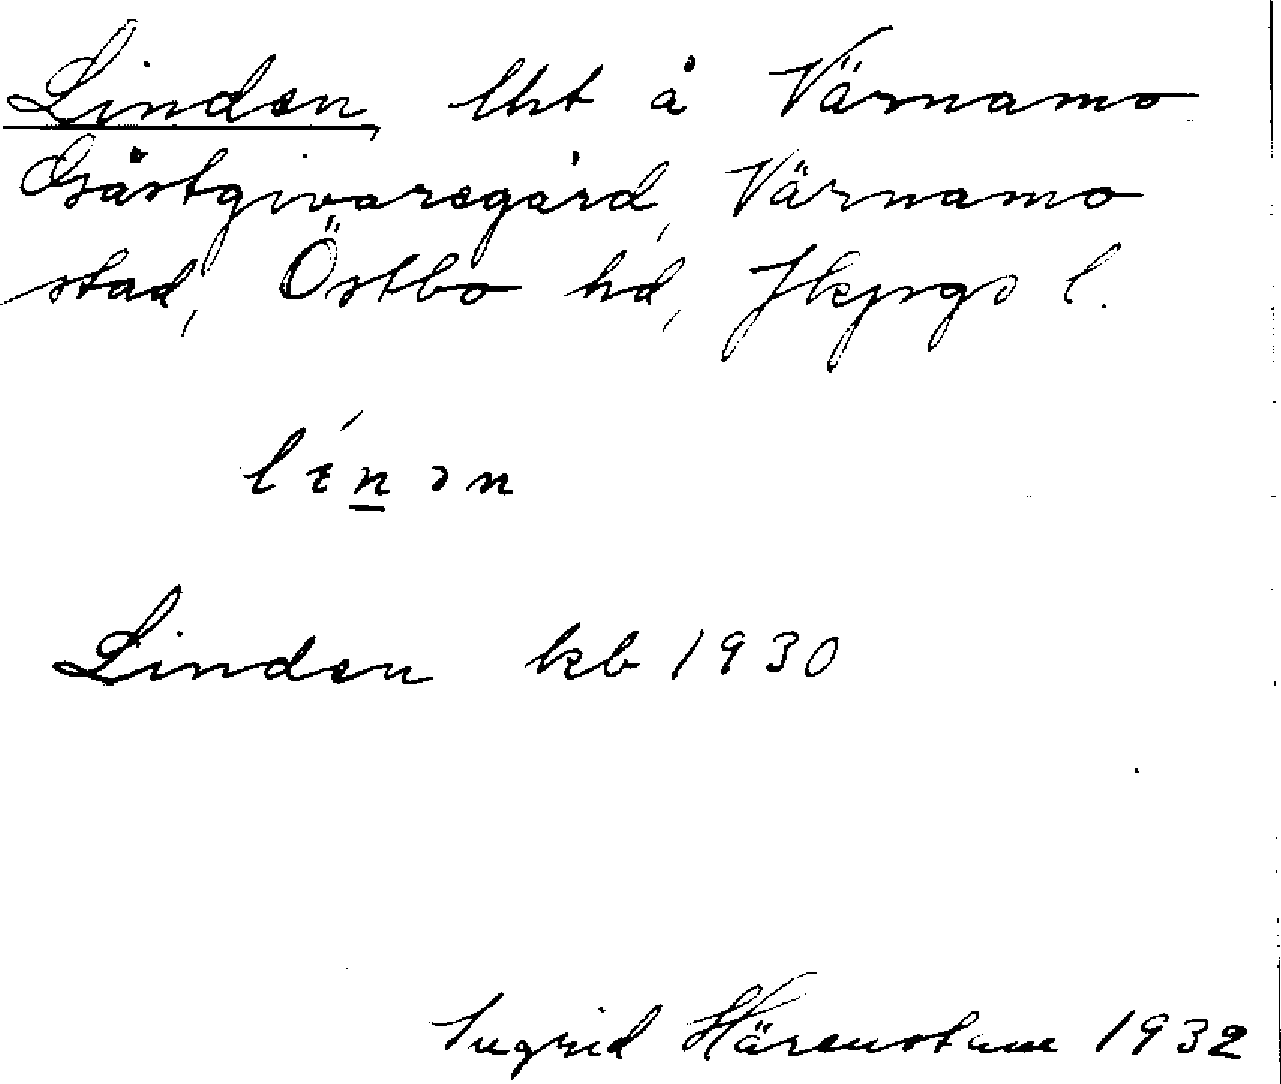 Linden, lht å Värnamo
Gästgivaregård, Värnamo
stad, Östbo hd, Jkpgs l.
lı́n̲ən
Linden kb 1930
Ingrid Härenstam 1932